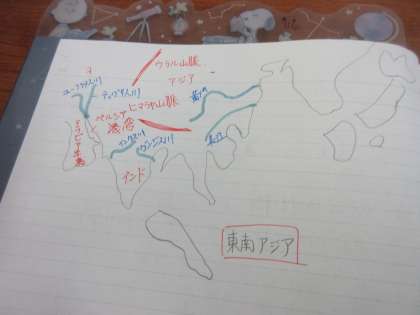 ウラル山脈
アジア
ユーフラテス川
チグリス川
ヒマラヤ山脈
黄河
ペルシア
湾岸
アラビア半島
インダス川
ガンジス川
長江
インド
東南アジア